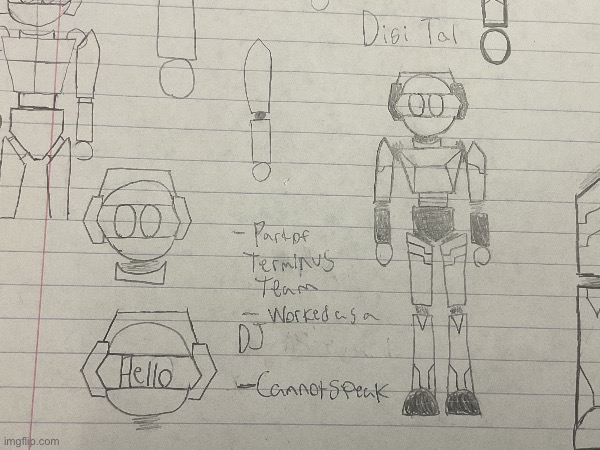 Digi Tal
- Part of
Terminus
Team
- Worked as a
DJ
- Cannot speak
Hello
imgflip.com